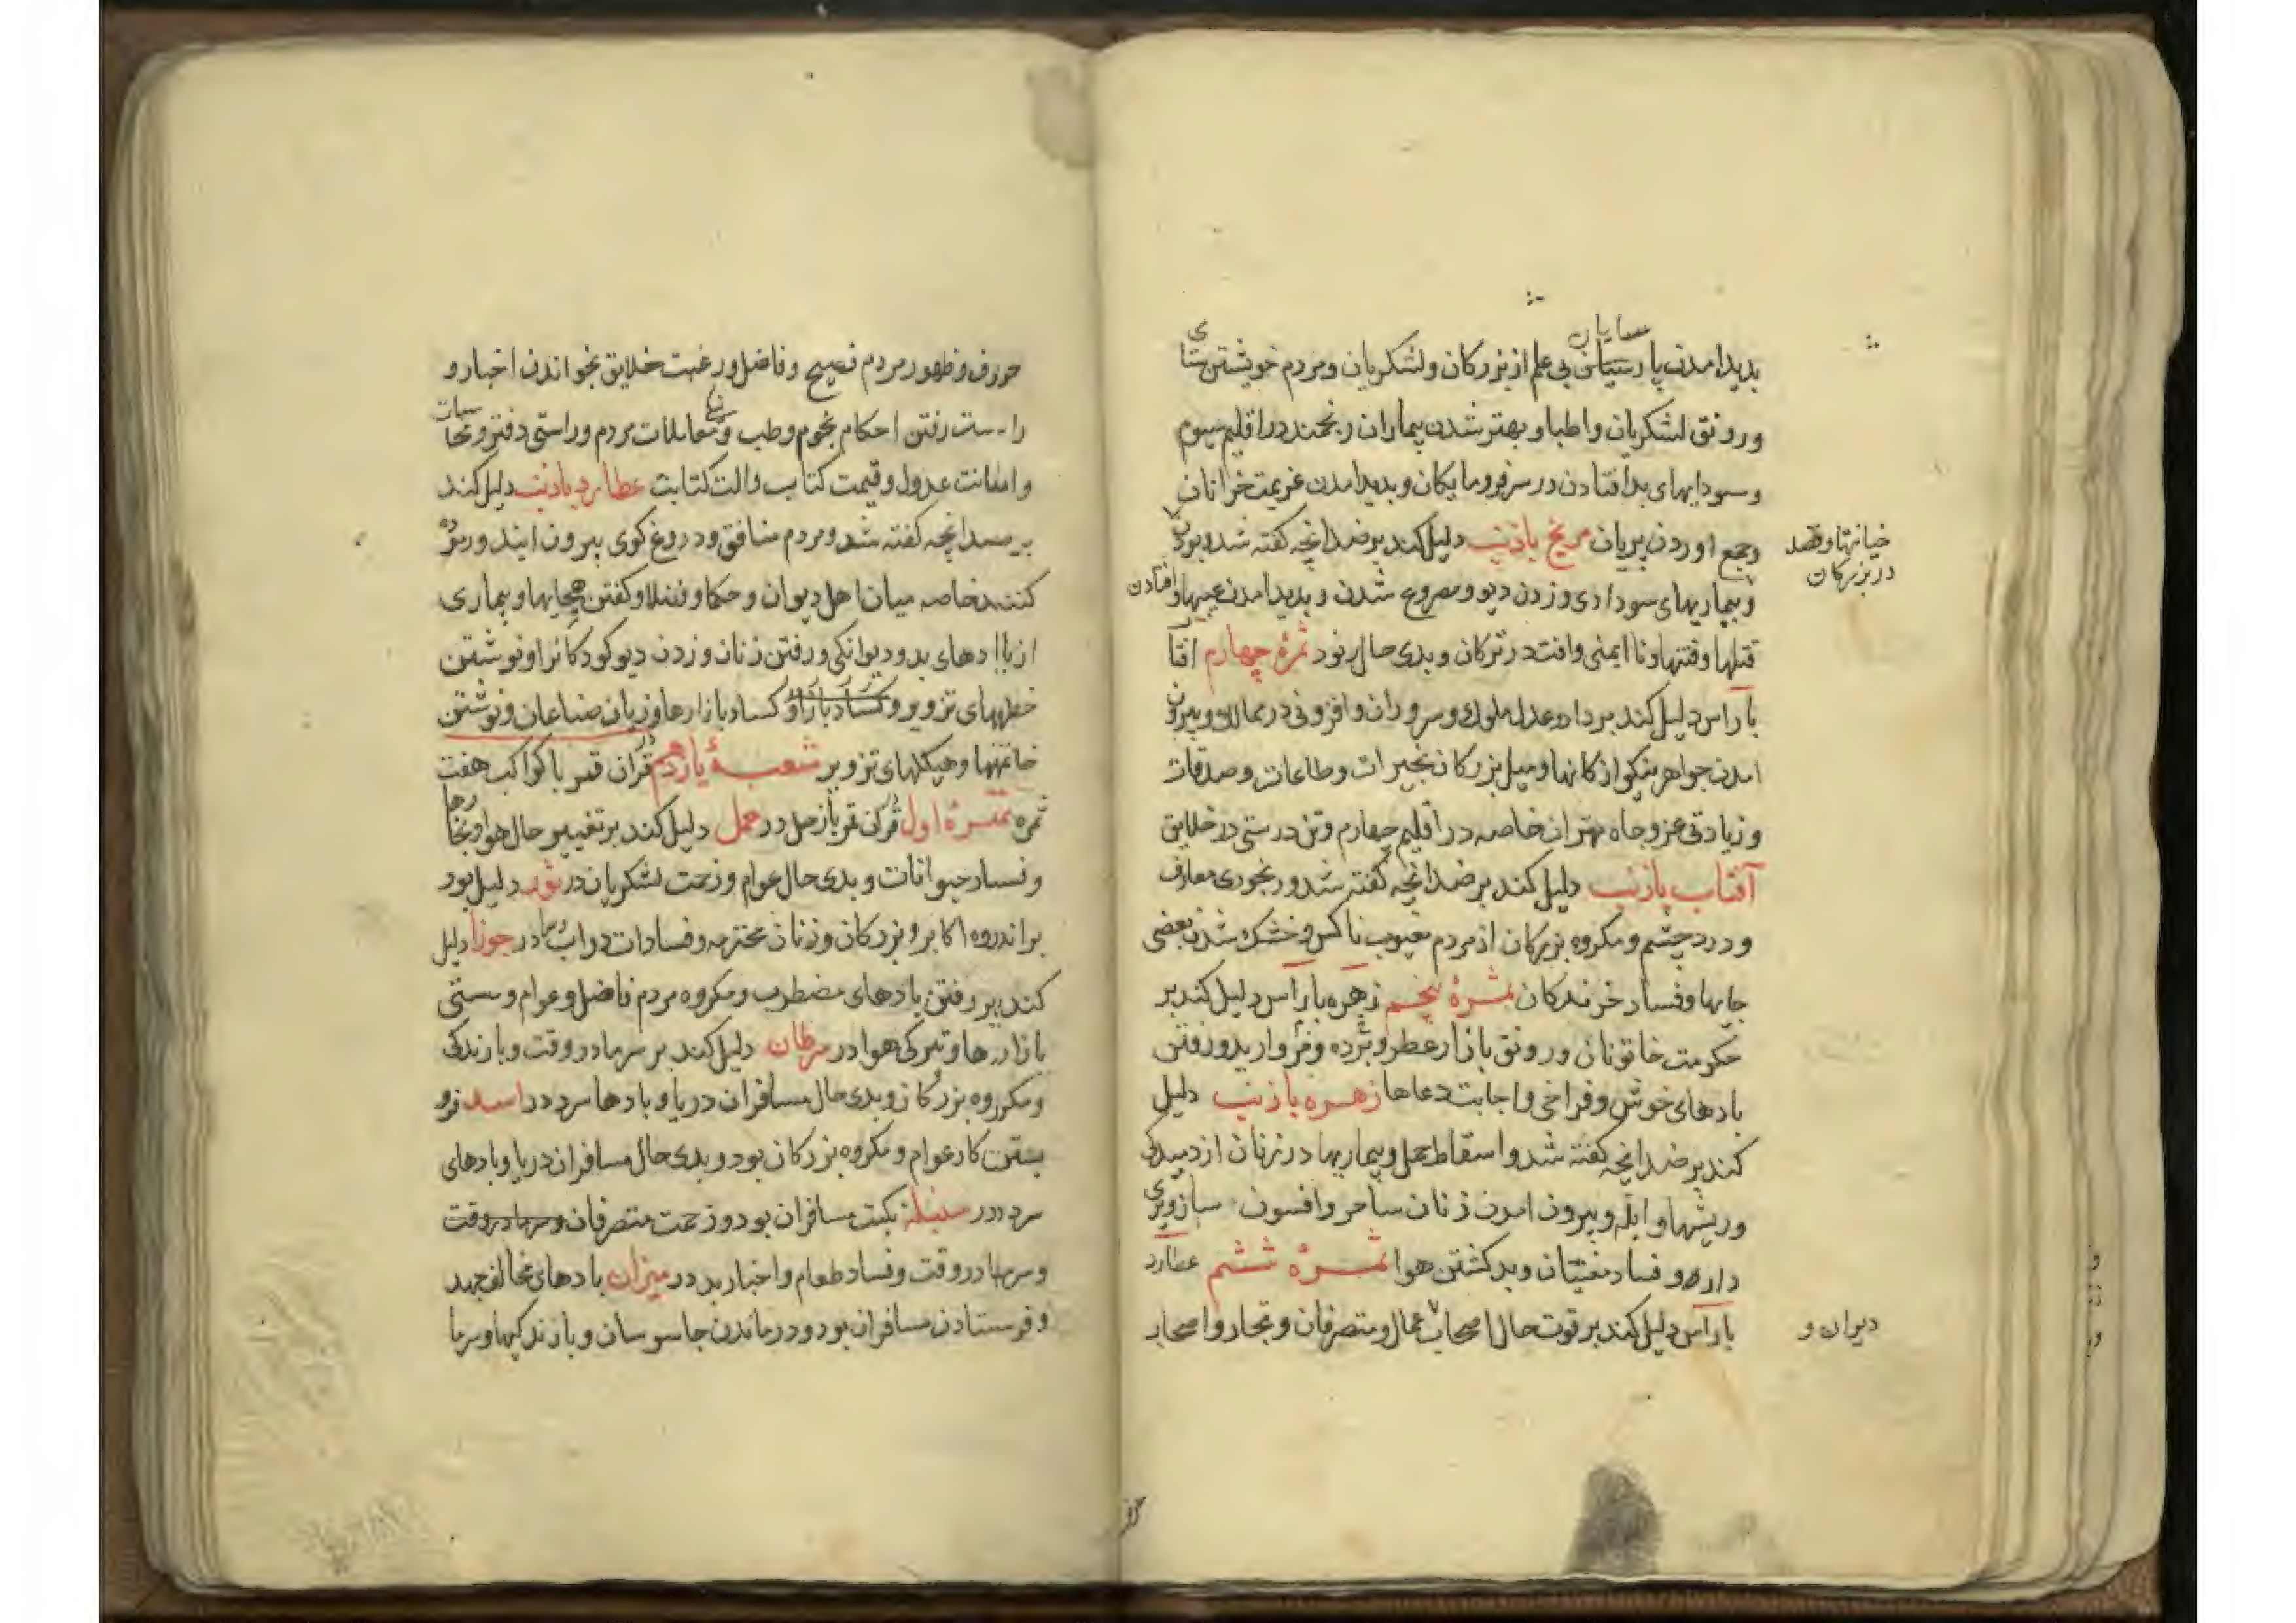 پدید امدن پارسایان بی علم از بزرکان و لشکریان و مردم خویشتن ستای
و رونق لشکریان و اطبا و بهتر شدن بیماران رنجمند در اقلیم سیوم
و سودایهای بد افتادن در سر فرومایکان و پدید امدن عزیمت خوانان
و جمع اوردن پریان مریخ باذنب دلیل کند بر ضد انچه کفته شد
خیانتها و قصد
در بزرکان
و بیماریهای سودادی و زدن دیو و مصروع شدن و پدید امدن عیبها و افتادن
قتلها و فتنها و نا ایمنی و افت در ترکان و بدی حال نود ثمرهٔ چهارم افتا
بارآس دلیل کند بر داد و عدل ملوک و سروران و افزونی در ممالک و بیرون
امدن جواهر نیکو از کانها و میل بزرکان بخیرات و طاعات و صدقات
و زیادتی عز و جاه مهتران خاصه در اقلیم چهارم و تن درستی در خلایق
آفتاب باذنب دلیل کند بر ضد انچه کفته شد و رنجوری معارف
و درد چشم و مکروه بزرکان از مردم معیوب ناکس و خشک شدن بعضی
جایها و فساد خزندکان ثمرهٔ پنجم زهره بارآس دلیل کند بر
حکومت خاتونان و رونق بازار عطر و برده و مروارید و رفتن
بادهای خوش و فراخی و اجابت دعاها زهره باذنب دلیل
کند بر ضد انچه کفته شد و اسقاط حمل و بیماریها در زنان از دمیدکی
و ریشها و ابله و بیرون امدن زنان ساحر و افسون ساز و بری
دارو و فساد مغنیان و بد کشتن هوا ثمرهٔ ششم عطارد
بارآس دلیل کند بر قوت حال اصحاب عمال و متصرفان و تجار و اصحاب
دیوان و
حروف و ظهور مردم فصیح و فاضل و رغبت خلایق بخواندن اخبار و
راست رفتن احکام نجوم و طب و معاملات مردم و راستی دفتر و محاسبات
و امانت عدول و قیمت کتاب و الت کتابت عطارد باذنب دلیل کند
بر ضد انچه کفته شد و مردم منافق و دروغ کوی بیرون ایند و
کنند خاصه میان اهل دیوان و حکما و فضلا و کفتن هجایها و بیماری
از بادهای بد و دیوانکی و رفتن زنان و زدن دیو کودکانرا و نوشتن
خطهای تزویر و کساد بازار و کساد بازارها و زیان صناعان و نوشتن
خاتمتها و هیکلهای تزویر شعبهٔ یازدهم در قران قمر با کواکب هفت
ثمره ثمرهٔ اول قران قمر بازحل در حمل دلیل کند بر تغییر حال هوا و بخارها
و فساد حیوانات و بدی حال عوام و زحمت لشکریان در ثور دلیل بود
بر اندوه اکابر و بزرکان و زنان محترمه و فسادات دواب در جوزا دلیل
کند بر رفتن بادهای مضطرب و مکروه مردم فاضل و عوام و سستی
بازارها و تیرکی هوا در سرطان دلیل کند بر سرما در وقت و بارندکی
و مکروه بزرکان و بدی حال مسافران دریا و بادها سرد در اسد فرو
بستن کار عوام و مکروه بزرکان بود و بدی حال مسافران دریا و بادهای
سرد در سنبله نکبت مسافران بود و زحمت متصرفان و سرما در وقت
و سرما در وقت و فساد طعام و اخبار بد در میزان بادهای مخالف جهد
و فرستادن مسافران بود و در ماندن جاسوسان و بارندکیها و سرما